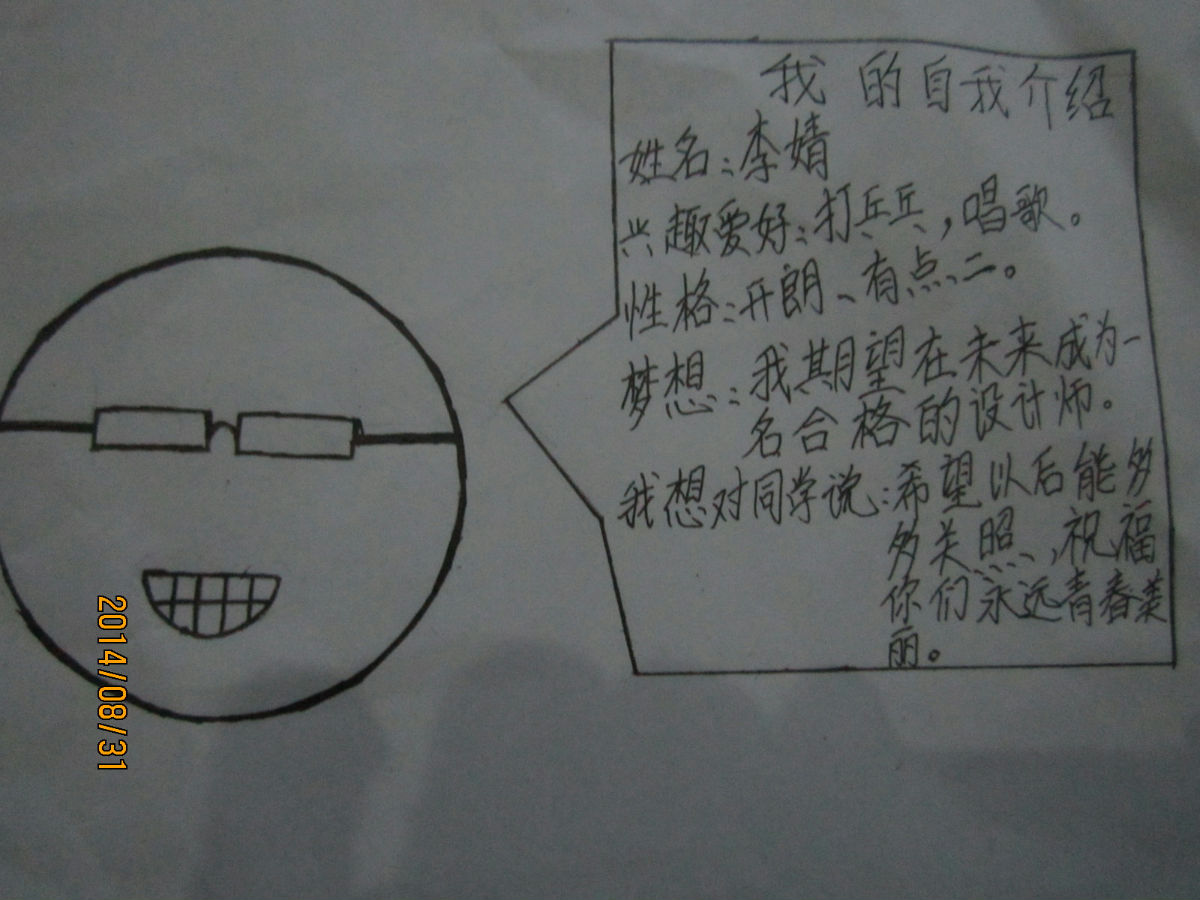 我的自我介绍
姓名:李婧
兴趣爱好:打乒乓,唱歌。
性格:开朗、有点二。
梦想:我期望在未来成为一
名合格的设计师。
我想对同学说:希望以后能多
多关照,祝福
你们永远青春美
丽。
2014/08/31